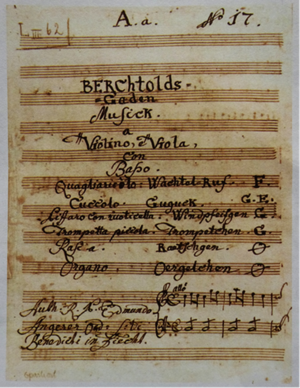 L III 62
A. a. No 17.
BERCHtolds=
=Gaden
Musick.
a
Violino, è Viola,
Con
Baßo.
Quagliariolo: Wachtel-Ruf. F.
Cuccùlo: Guguck. G. E.
Ciffaro con ruoticella: Windpfeifgen G.
Trompetta picola: Trompetchen. G.
Ras:a. Raetschgen.
Organo, Oergelchen.
Auth: R. P. Edmundo
Angerer Ord: Scti:
Benedicti in Fiecht.